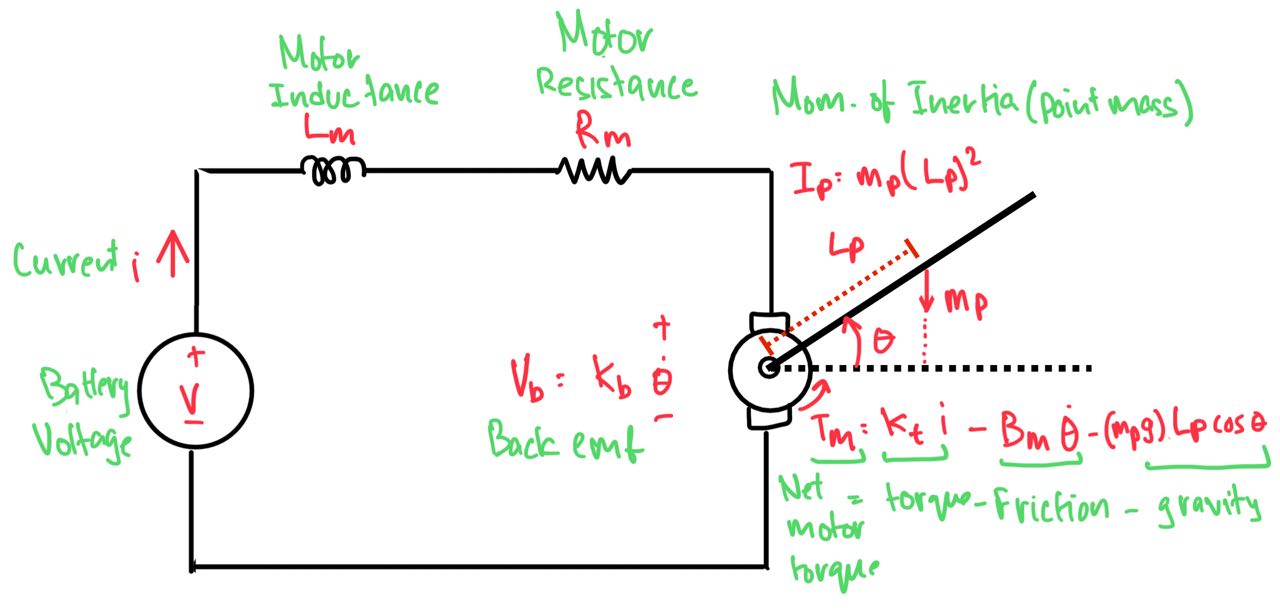 Motor
Inductance
Lm
Motor
Resistance
Rm
Mom. of Inertia (point mass)
Ip = mp(Lp)²
Lp
mp
θ
Current i
Battery
Voltage
+
V
−
+
Vb = Kb θ̇
−
Back emf
Tm = Kt i − Bm θ̇ − (mpg) Lp cos θ
Net motor torque = torque − Friction − gravity